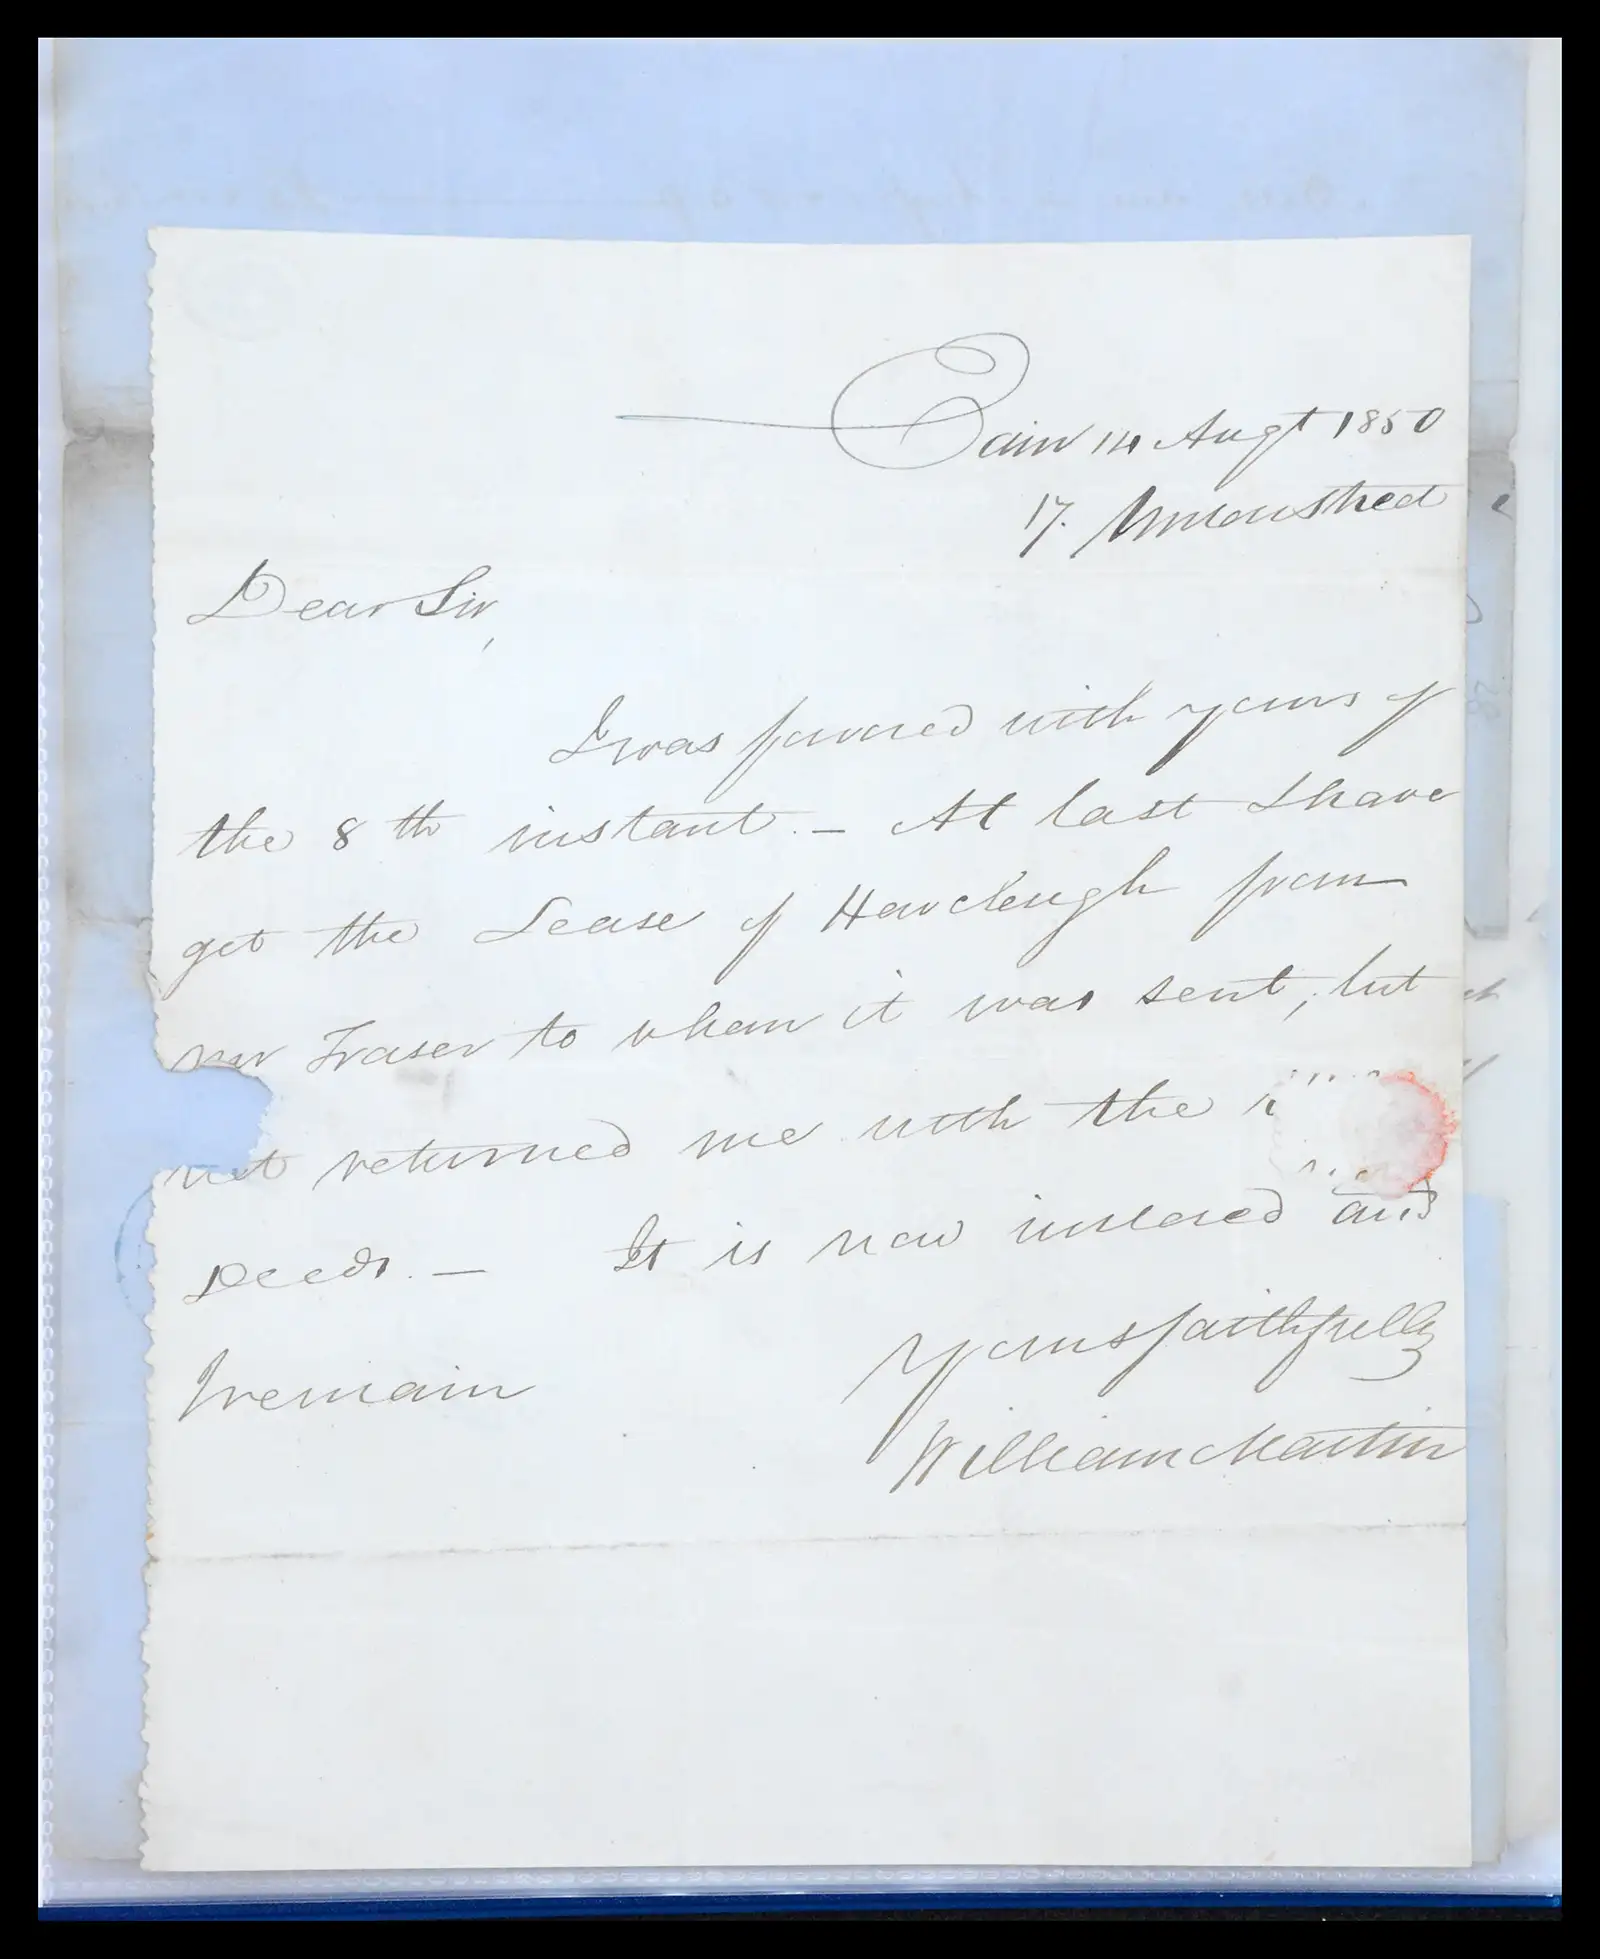 Tain 14 Augt 1850
17.
Dear Sir,
I was favored with yours of
the 8th instant. — At last I have
get the Lease of from
mr Fraser to whom it was sent, but
not returned me with the
Deeds. — It is now inclosed and
I remain
Yours faithfully
William Martin